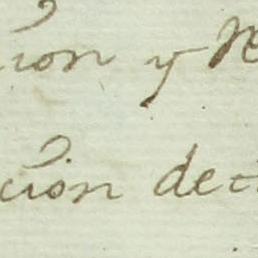 cion y
cion de